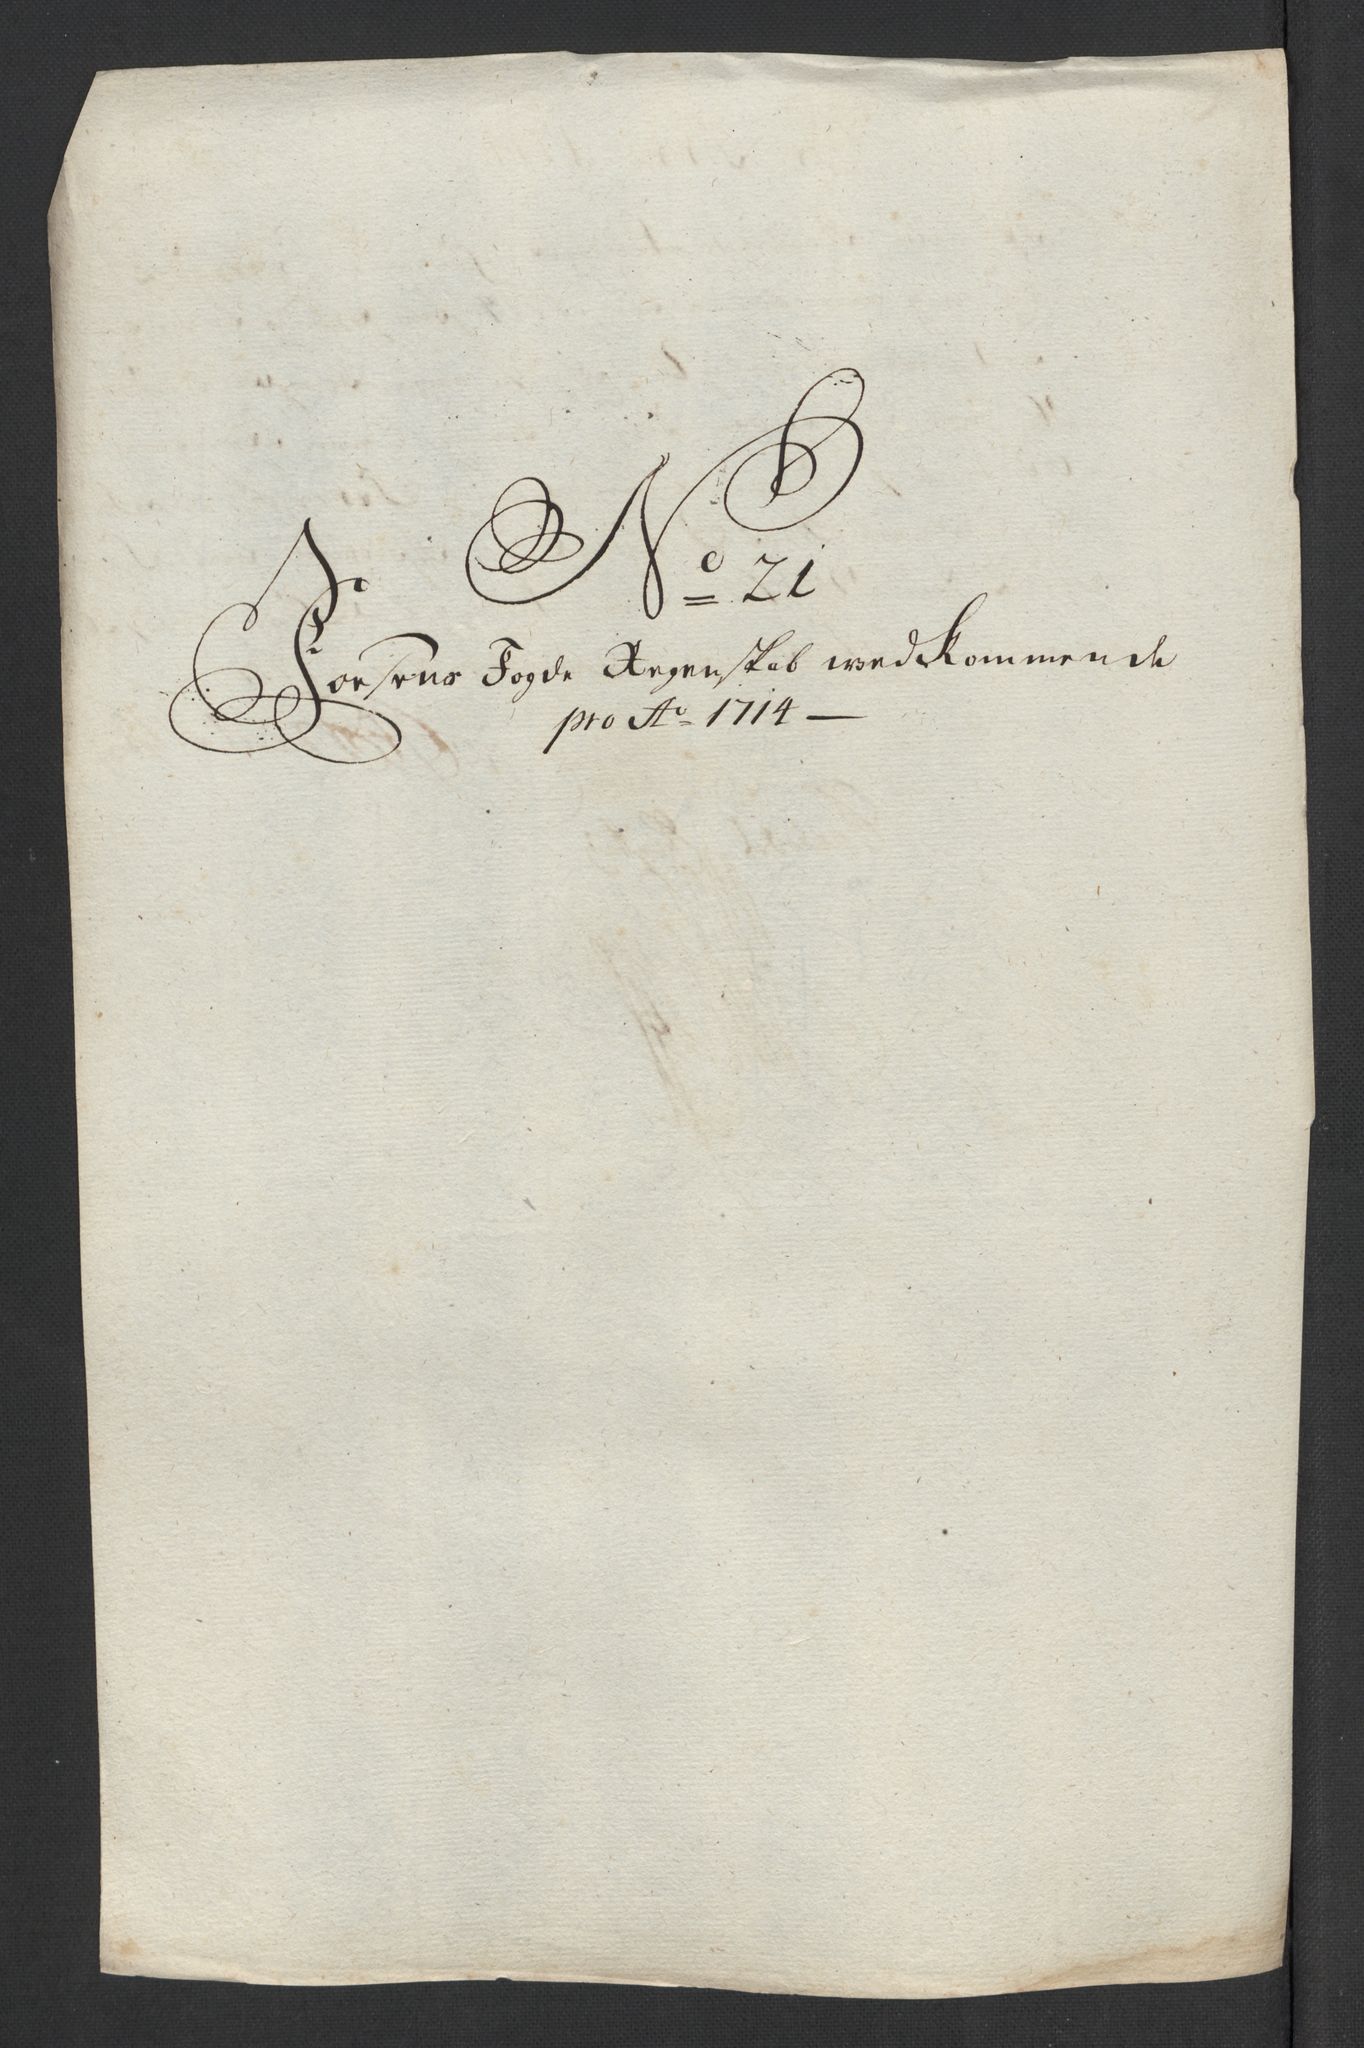 No 21
Foesens Fogde Regenskab wedkommende
pro Ao 1714 —